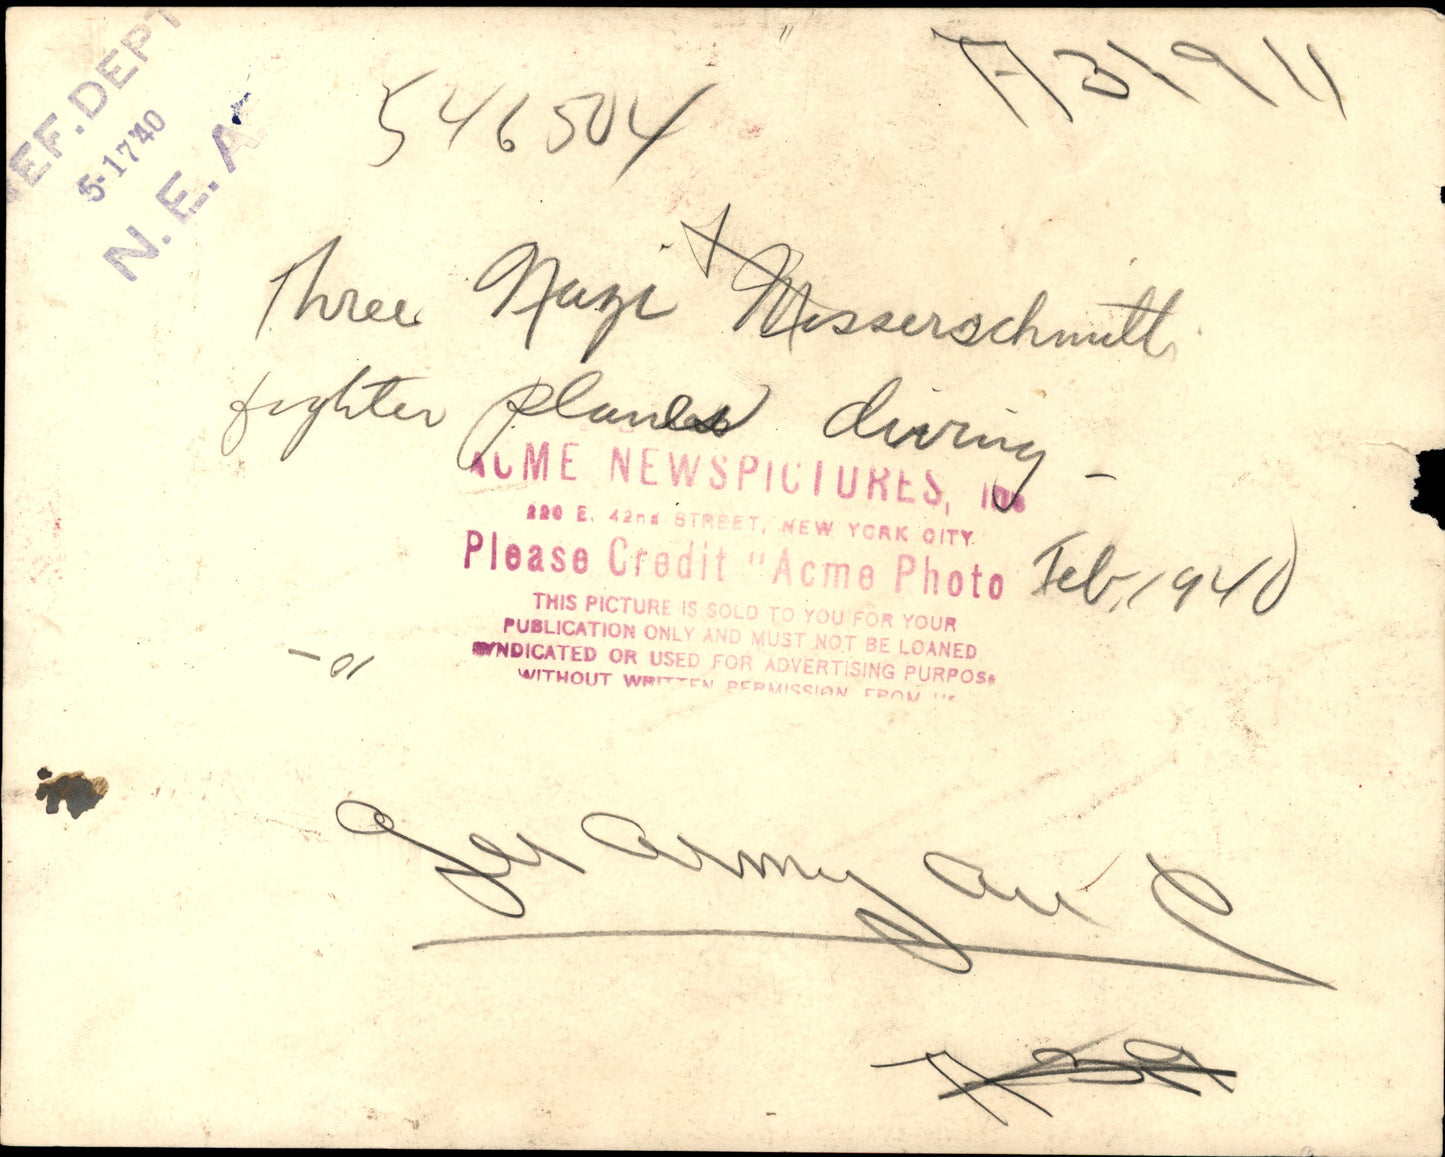 REF. DEPT
5-17'40
N. E. A.
546504
Three Nazi Messerschmitt
fighter planes diving -
ACME NEWSPICTURES, INC
220 E. 42nd STREET, NEW YORK CITY
Please Credit "Acme Photo
Feb, 1940
THIS PICTURE IS SOLD TO YOU FOR YOUR
PUBLICATION ONLY AND MUST NOT BE LOANED,
SYNDICATED OR USED FOR ADVERTISING PURPOSE
WITHOUT WRITTEN PERMISSION FROM US
Ger Army Air